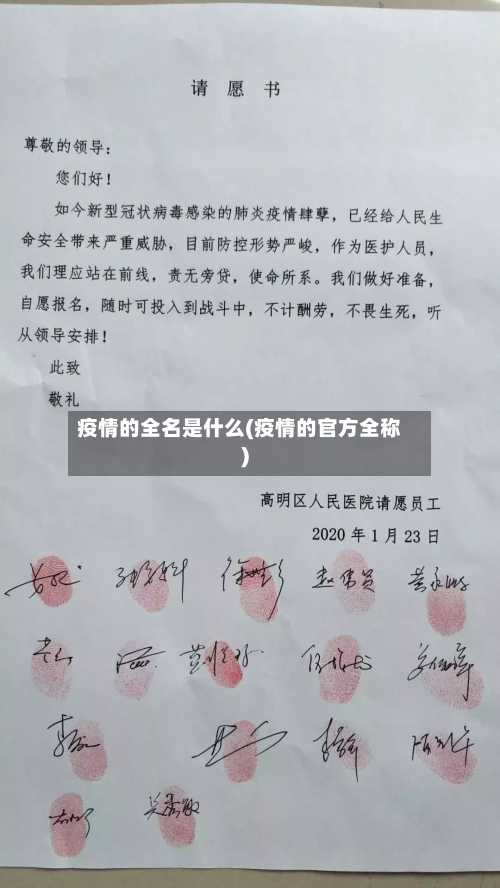 请愿书
尊敬的领导：
您们好！
如今新型冠状病毒感染的肺炎疫情肆孽，已经给人民生
命安全带来严重威胁，目前防控形势严峻，作为医护人员，
我们理应站在前线，责无旁贷，使命所系。我们做好准备，
自愿报名，随时可投入到战斗中，不计酬劳，不畏生死，听
从领导安排！
此致
敬礼
疫情的全名是什么(疫情的官方全称
)
高明区人民医院请愿员工
2020年1月23日